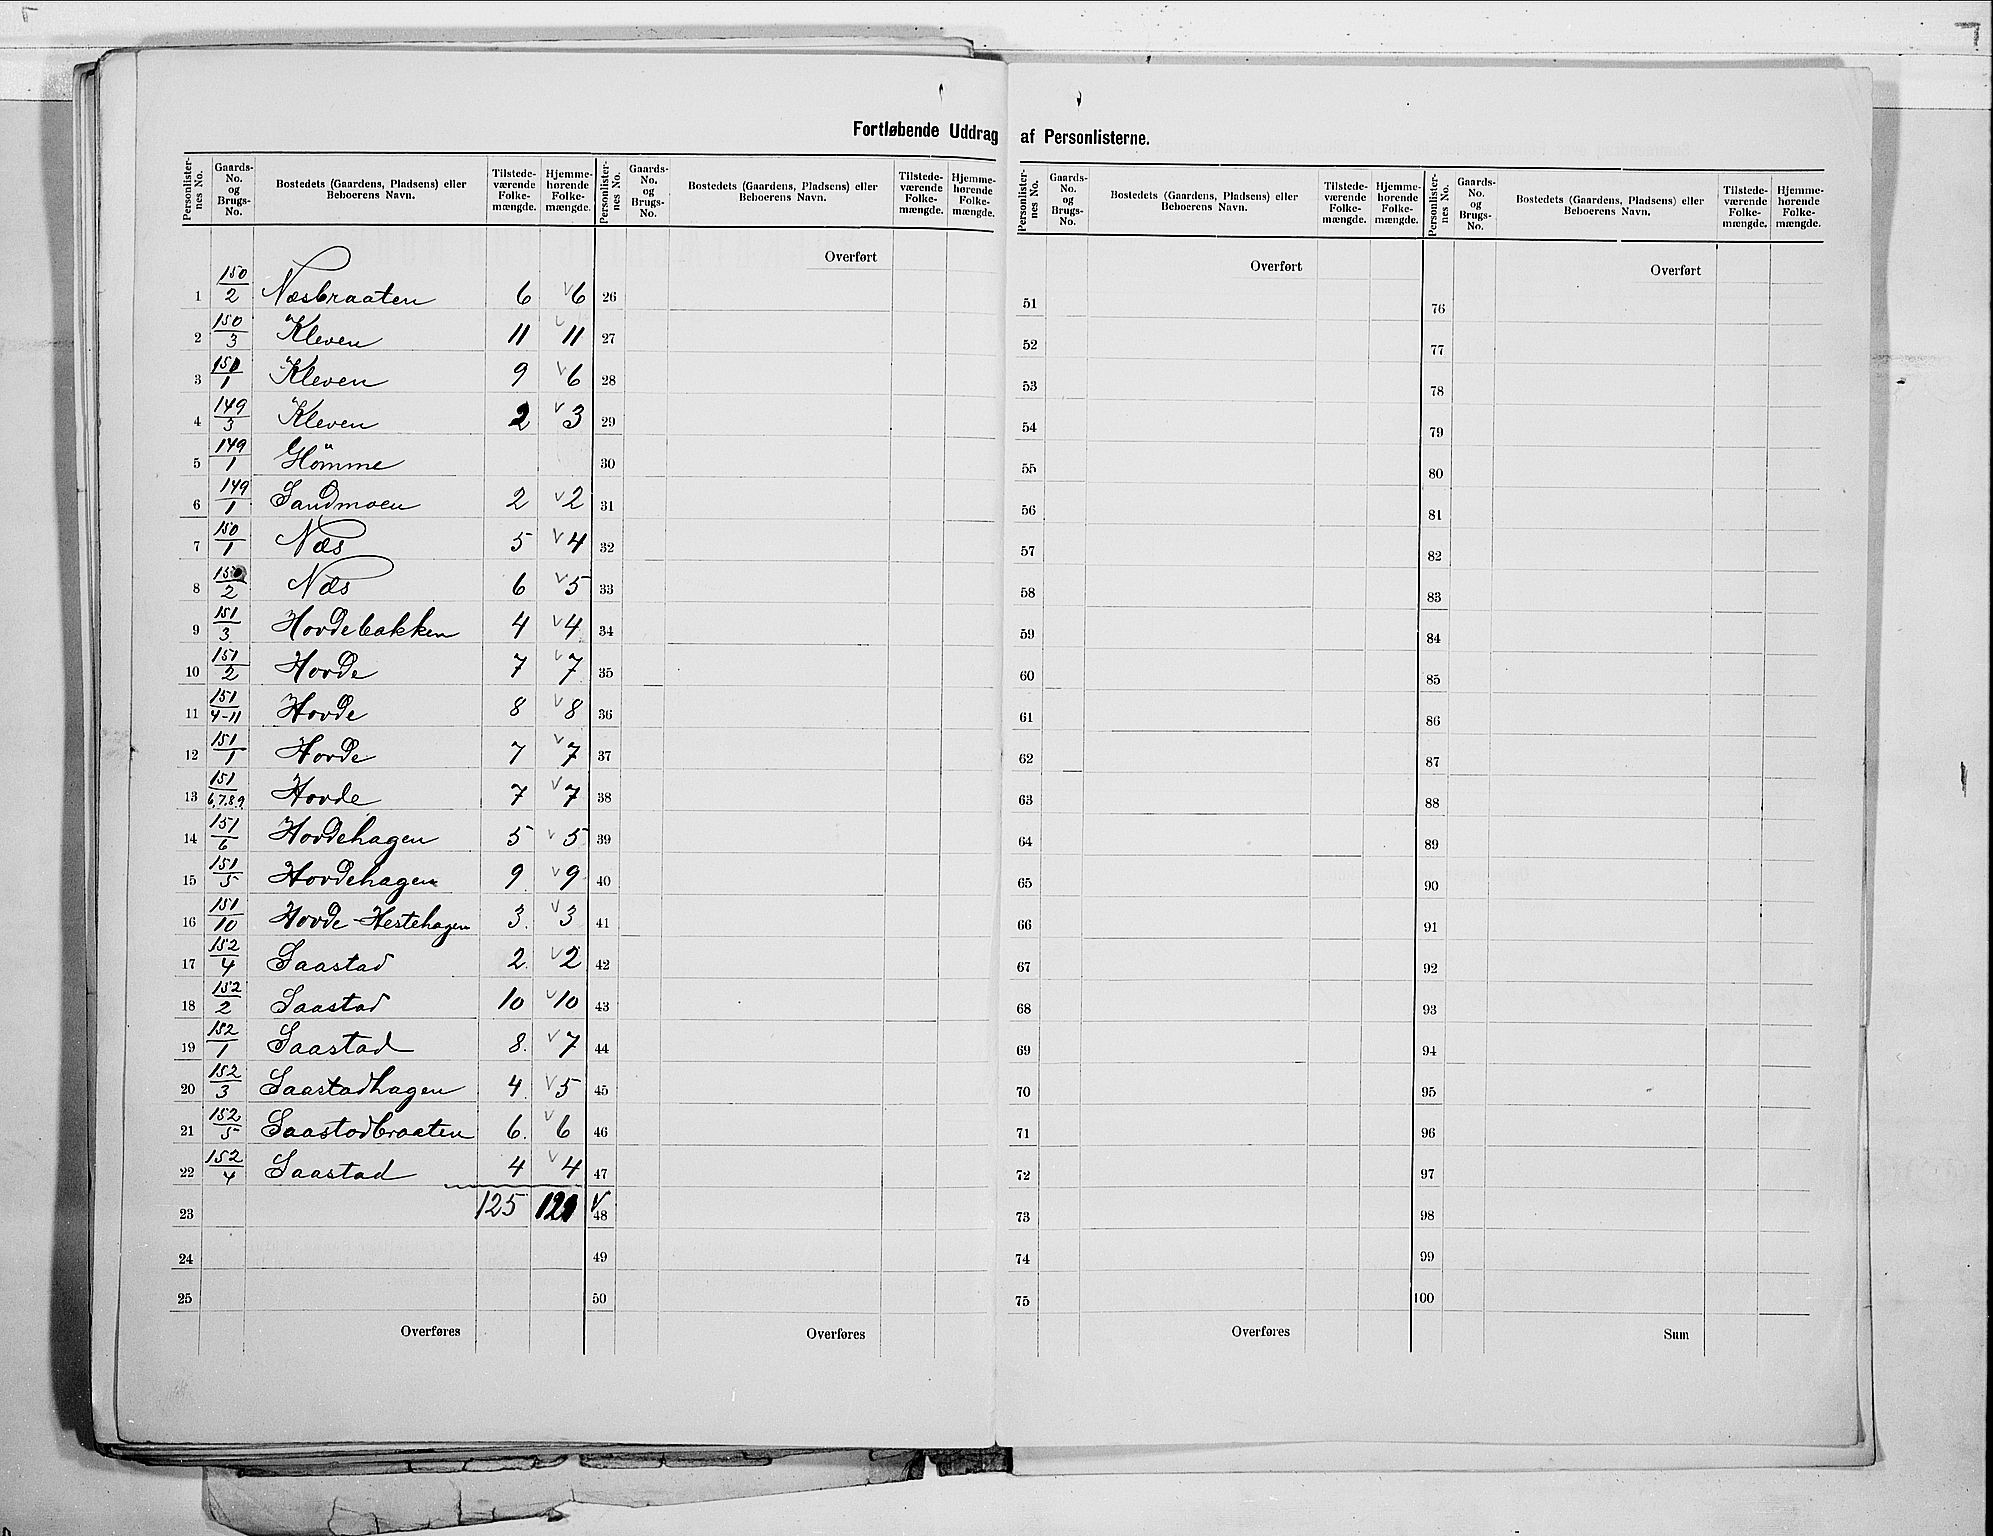 Fortløbende Uddrag af Personlisterne.
Personlister-nes No. | Gaards-No. og Brugs-No. | Bostedets (Gaardens, Pladsens) eller Beboerens Navn. | Tilstede-værende Folke-mængde. | Hjemme-hørende Folke-mængde. | Personlister-nes No. | Gaards-No. og Brugs-No. | Bostedets (Gaardens, Pladsens) eller Beboerens Navn. | Tilstede-værende Folke-mængde. | Hjemme-hørende Folke-mængde. | Personlister-nes No. | Gaards-No. og Brugs-No. | Bostedets (Gaardens, Pladsens) eller Beboerens Navn. | Tilstede-værende Folke-mængde. | Hjemme-hørende Folke-mængde. | Personlister-nes No. | Gaards-No. og Brugs-No. | Bostedets (Gaardens, Pladsens) eller Beboerens Navn. | Tilstede-værende Folke-mængde. | Hjemme-hørende Folke-mængde.
Overført Overført Overført
1 150/2 Næsbraaten 6 v 6 26 51 76
2 150/3 Kleven 11 v 11 27 52 77
3 151/1 Kleven 9 v 6 28 53 78
4 149/3 Kleven 2 v 3 29 54 79
5 149/1 Hömme 30 55 80
6 149/1 Sandmoen 2 v 2 31 56 81
7 150/1 Næs 5 v 4 32 57 82
8 150/2 Næs 6 v 5 33 58 83
9 151/3 Hovdebakken 4 v 4 34 59 84
10 151/2 Hovde 7 v 7 35 60 85
11 151/4-11 Hovde 8 v 8 36 61 86
12 151/1 Hovde 7 v 7 37 62 87
13 151/6,7,8,9 Hovde 7 v 7 38 63 88
14 151/6 Hovdehagen 5 v 5 39 64 89
15 151/5 Hovdehagen 9 v 9 40 65 90
16 151/10 Hovde-Hestehagen 3. v 3 41 66 91
17 152/4 Saastad 2. v 2 42 67 92
18 152/2 Saastad 10 v 10 43 68 93
19 152/1 Saastad 8. v 7 44 69 94
20 152/3 Saastadhagen 4. v 5 45 70 95
21 152/5 Saastadbraaten 6. v 6 46 71 96
22 152/4 Saastad 4 v 4 47 72 97
23 125 121 v 48 73 98
24 49 74 99
25 50 75 100
Overføres Overføres Overføres Sum